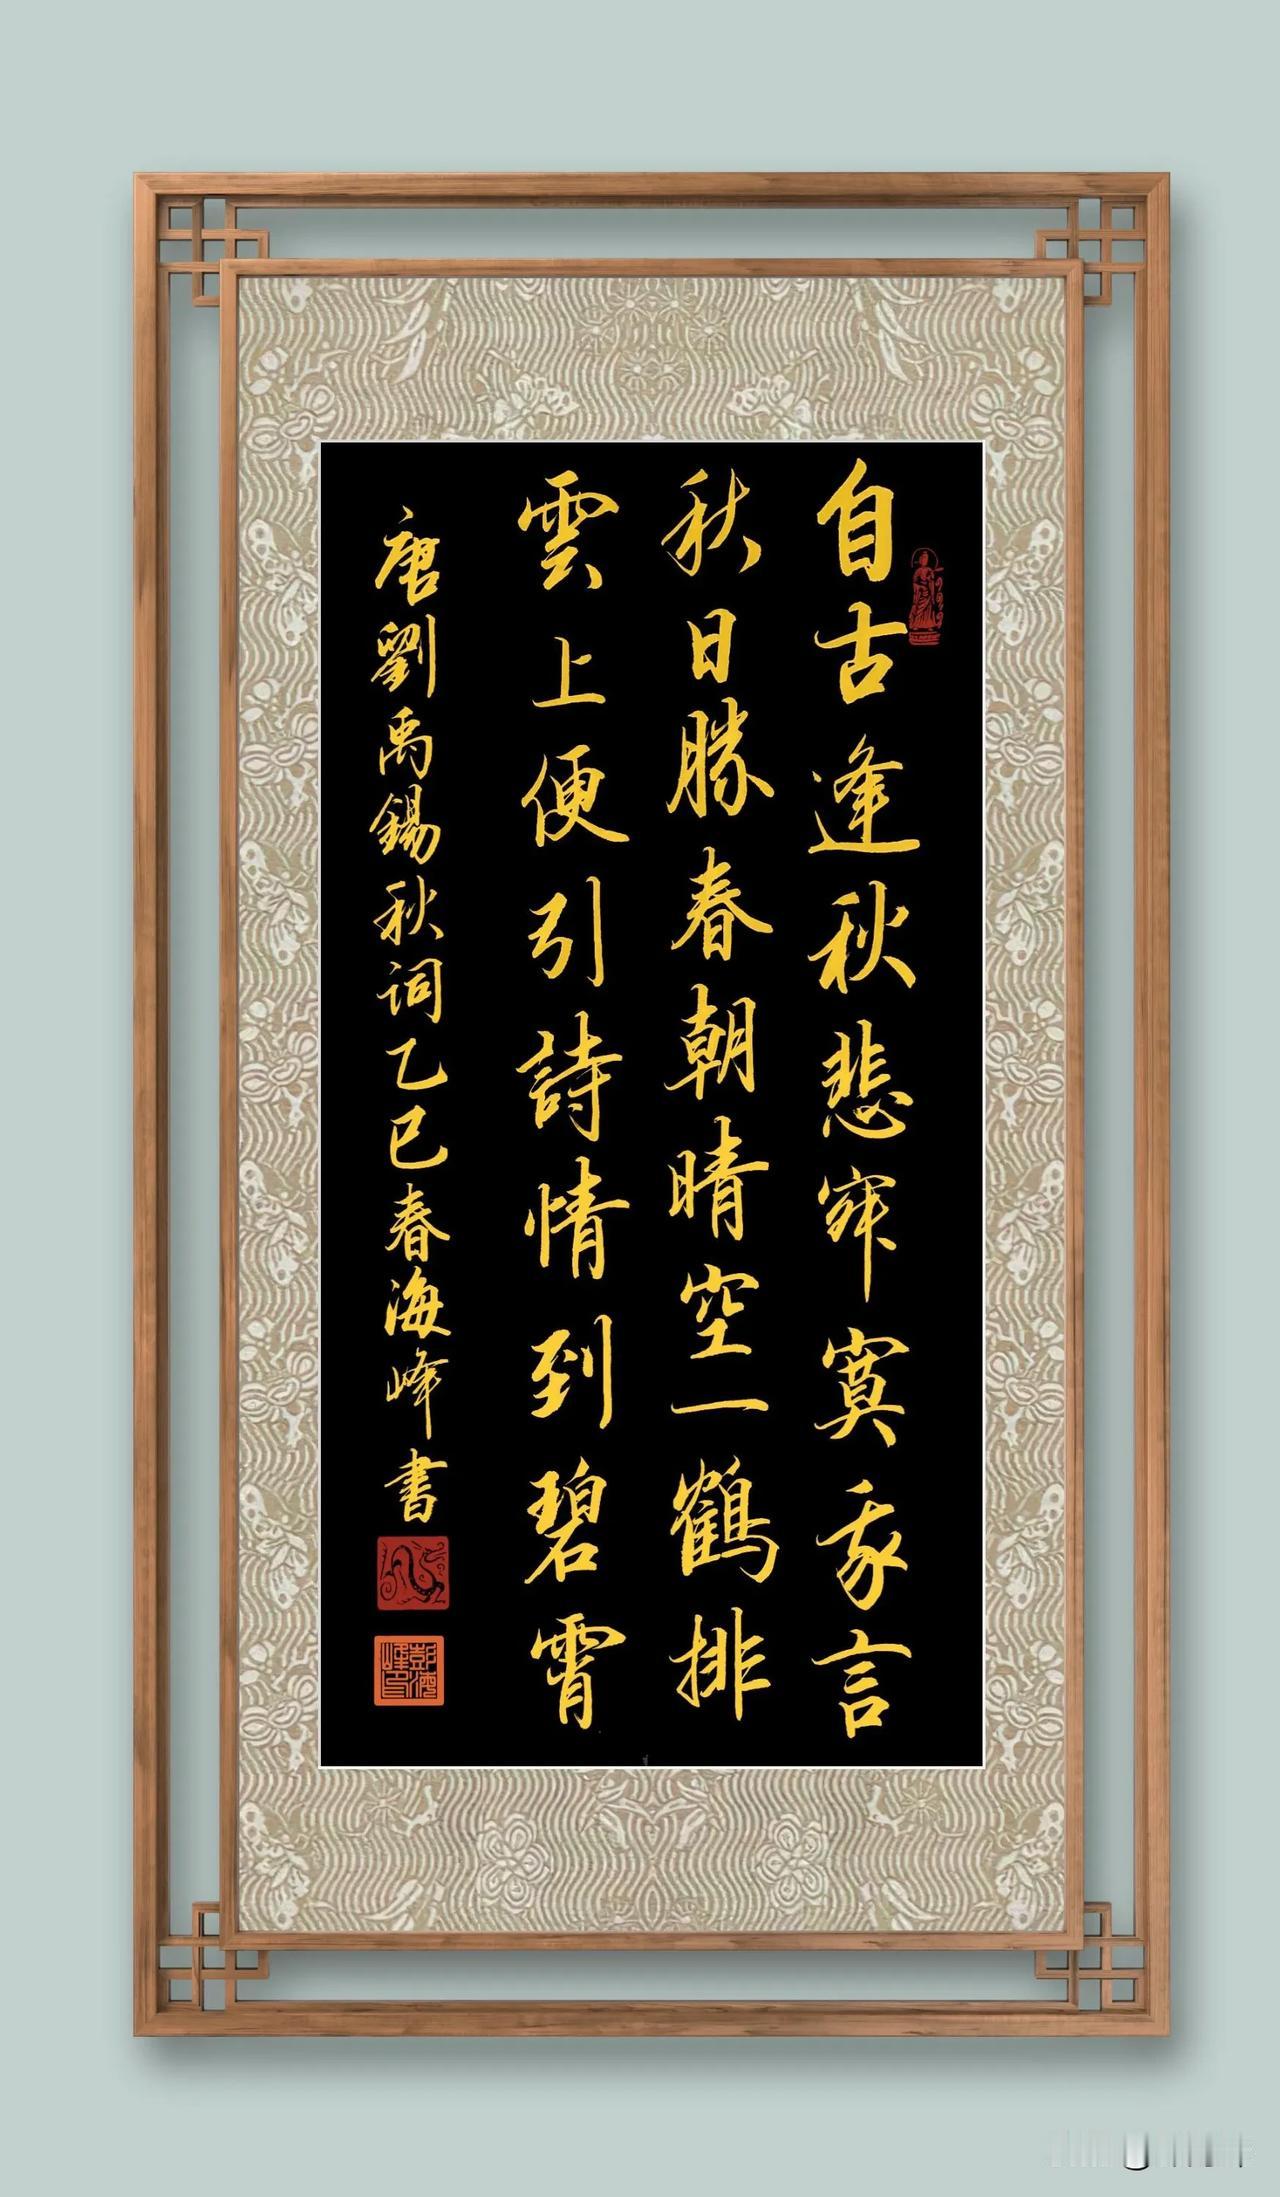 自古逢秋悲寂寞我言
秋日勝春朝晴空一鶴排
雲上便引詩情到碧霄
唐劉禹錫秋詞乙巳春海峰書
彭海峰印